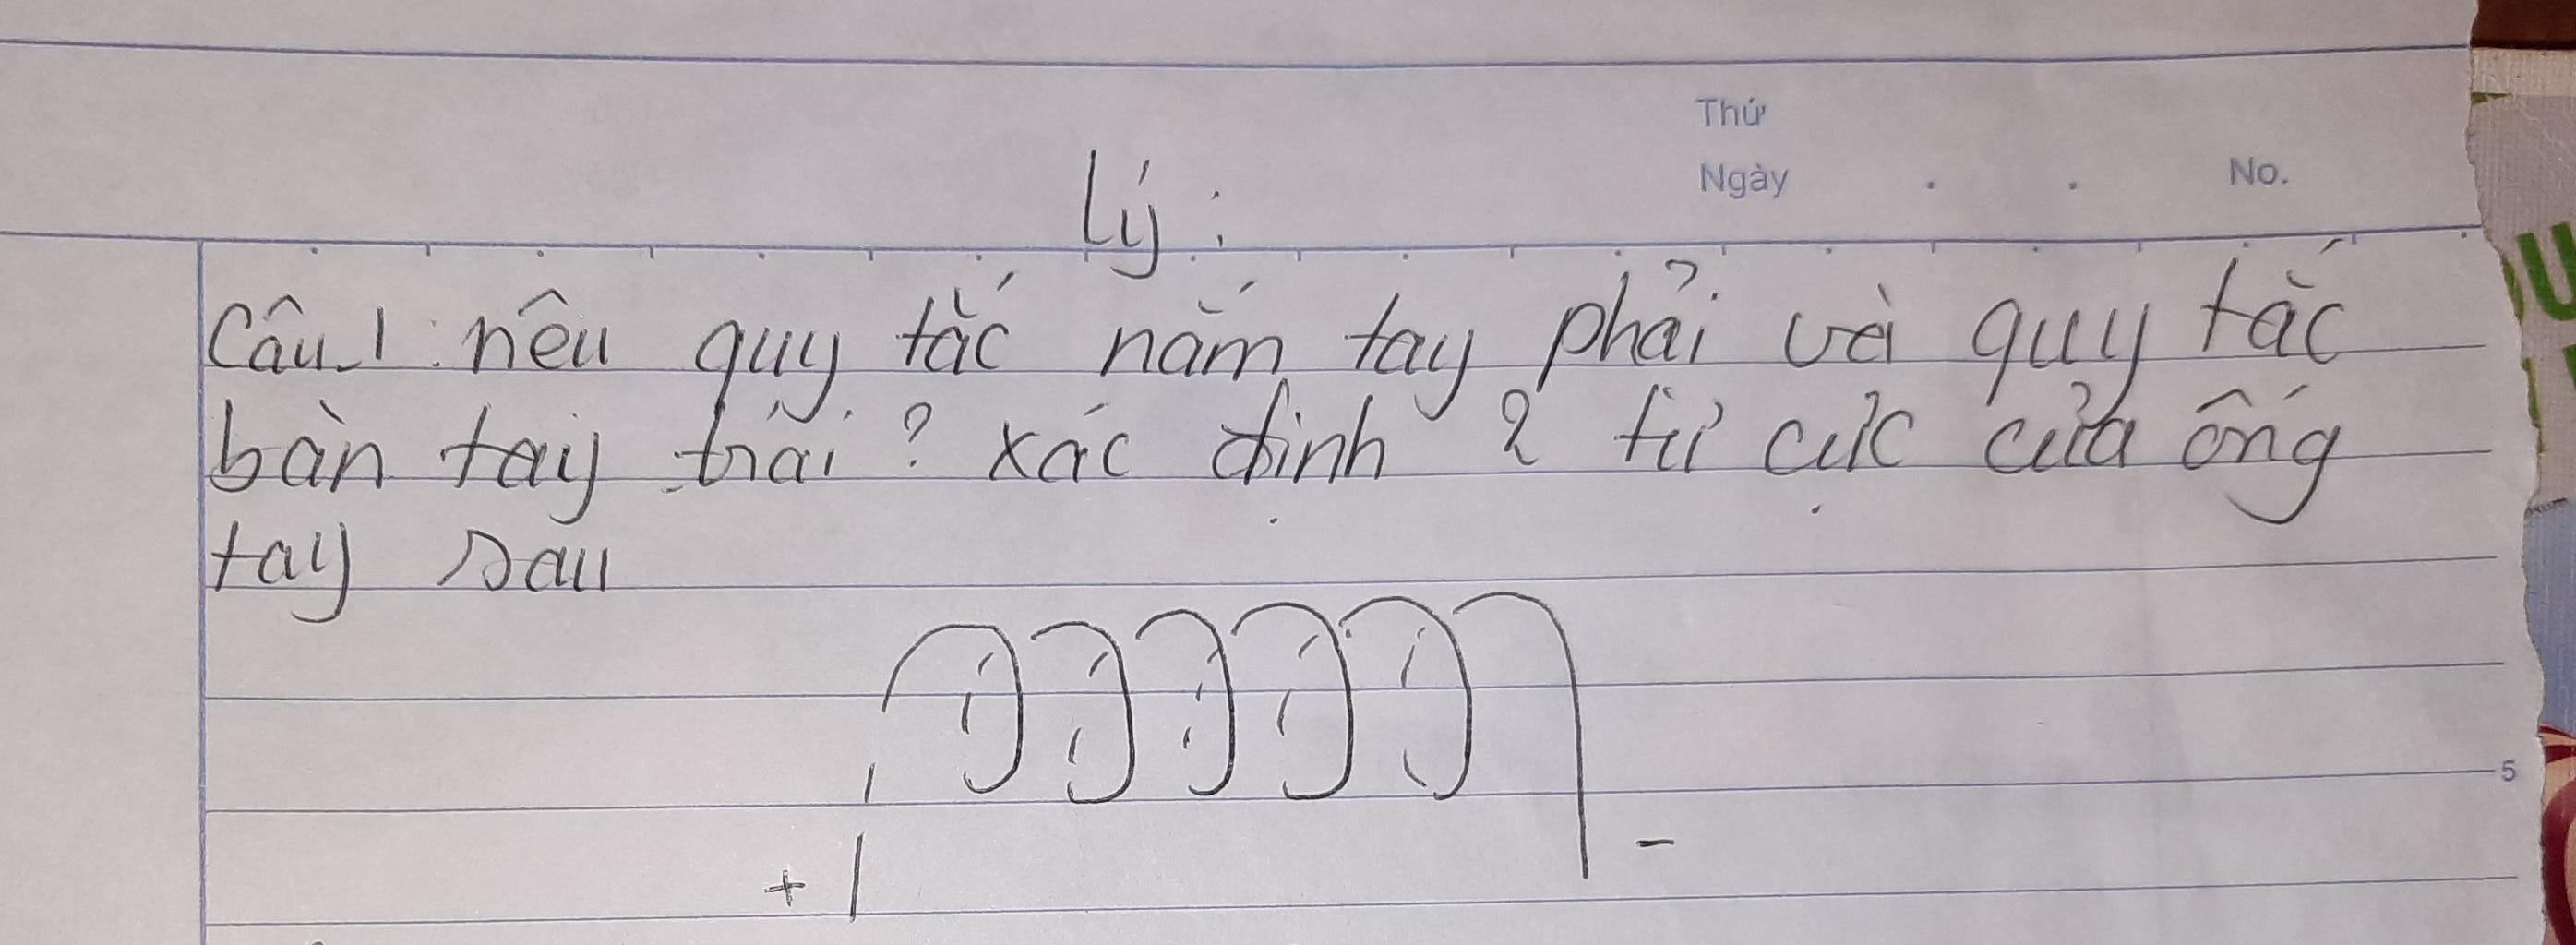 Thứ
Ngày . . No.
Lý:
Câu 1: nêu quy tắc nắm tay phải và quy tắc
bàn tay trái? xác định 2 từ cực của ống
tay sau
5
+ -